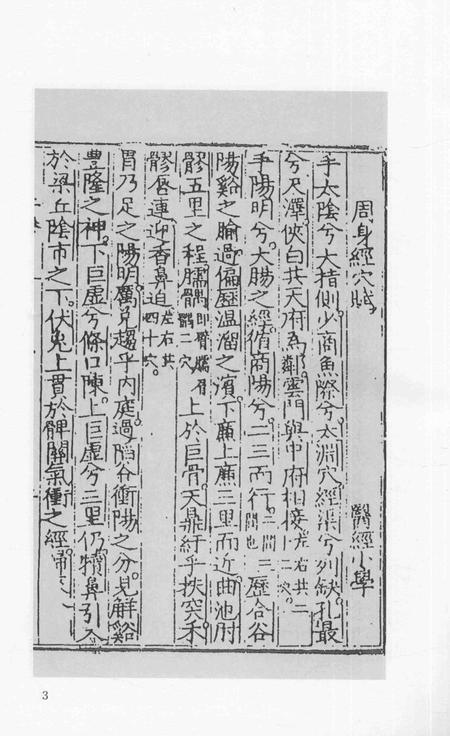 周身經穴賦 醫經小學
手太陰兮大指側少商魚際兮太淵穴經渠兮列缺孔最
兮尺澤俠白共天府爲鄰雲門與中府相接左右共二十二穴
手陽明兮大腸之經循商陽兮二三而行二間三間也歷合谷
陽谿之腧過偏歷溫溜之濱下廉上廉三里而近曲池肘
髎五里之程臑髃上於巨骨天鼎紆乎扶突禾
髎唇連迎香鼻迫左右共四十穴
胃乃足之陽明厲兌趨乎內庭過陷谷衝陽之分見解谿
豊隆之神下巨虛兮條口陳上巨虛兮三里仍犢鼻引入
於梁丘陰市之下伏兔上貫於髀關氣衝之經歸
3